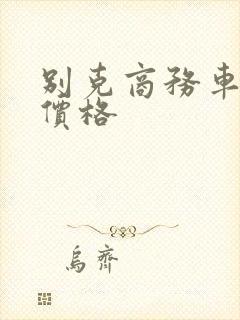 别克商務車
價格
烏齊